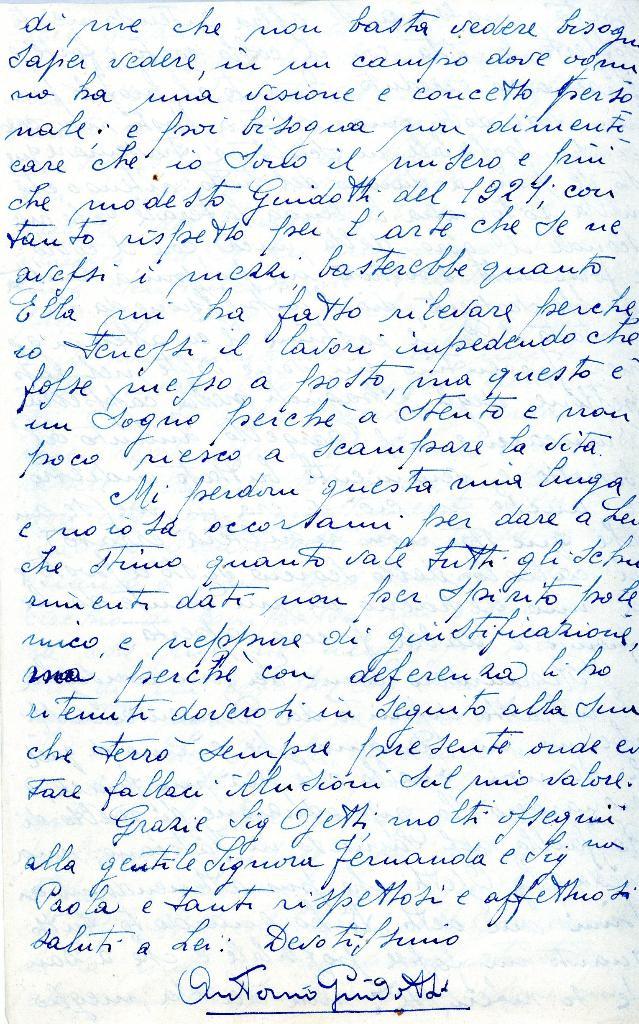 di me che non basta vedere bisogn
saper vedere, in un campo dove ognu
no ha una visione e concetto perso
nale; e poi bisogna non dimenti
care che io sono il misero e piu
che modesto Guidotti del 1924; con
tanto rispetto per l'arte che se ne
avessi i mezzi, basterebbe quanto
Ella mi ha fatto rilevare perche
io tenessi il lavori impedendo che
fosse messo a posto, ma questo è
un sogno perchè a stento e non
poco riesco a scampare la vita.
Mi perdoni questa mia lunga
e noiosa occorsami per dare a Lei
che stimo quanto vale tutti gli schia
rimenti dati non per spirito pole
mico, e neppure di giustificazione,
ma perchè con deferenza li ho
ritenuti doverosi in seguito alla Sua
che terrò sempre presente onde evi
tare fallaci illusioni sul mio valore.
Grazie Sig Ojetti, molti ossequi
alla gentile Signora Fernanda e Sig na
Paola e tanti rispettosi e affettuosi
saluti a Lei: Devotissimo
Antonio Guidotti